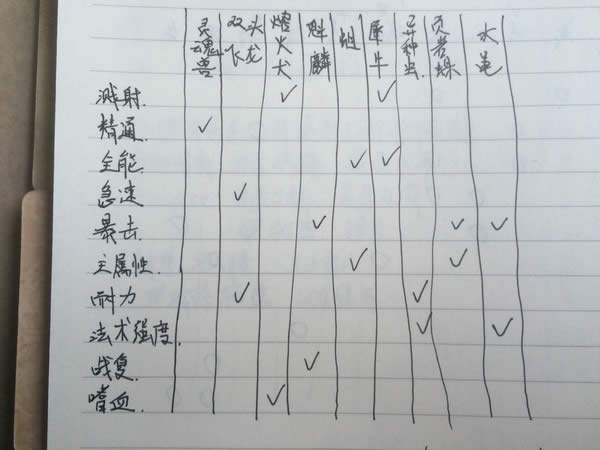 灵魂兽 双头飞龙 熔火犬 魁麟 蛆 犀牛 异种虫 页岩蛛 水黾
溅射.
精通.
全能.
急速
暴击.
主属性.
耐力
法术强度.
战复.
嗜血.